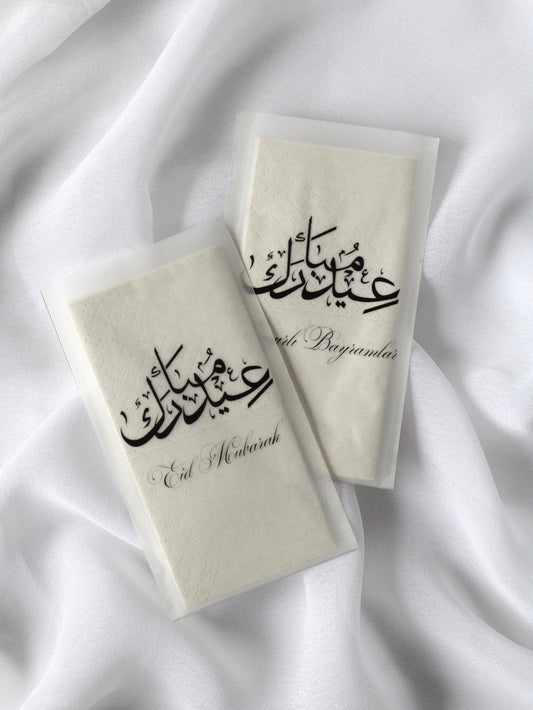 عيد مبارك
Eid Mubarak
عيد مبارك
Bayramlar